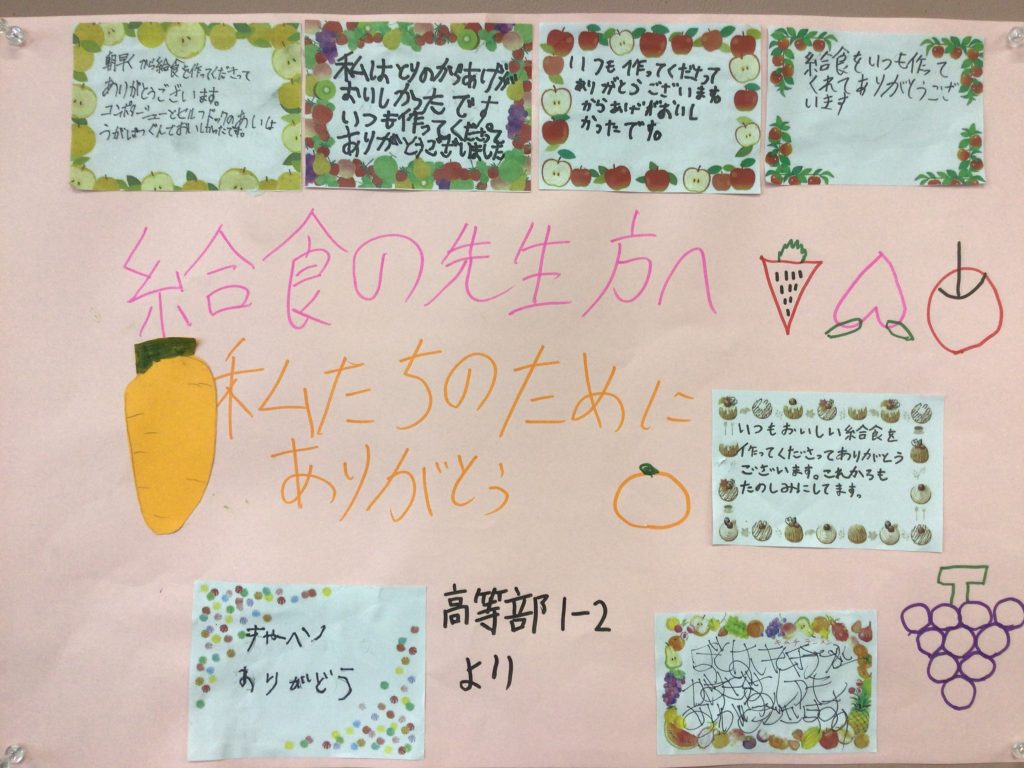 朝早くから給食を作ってくださって
ありがとうございます。
私はとりのからあげが
おいしかったです
いつも作ってくださって
ありがとうございました
いつも作ってくださって
ありがとうございます。
からあげがおいし
かったです。
給食をいつも作って
くれてありがとうござ
います
給食の先生方へ
私たちのために
ありがとう
いつもおいしい給食を
作ってくださってありがとう
ございます。これからも
たのしみにしてます。
ありがとう
高等部1-2
より